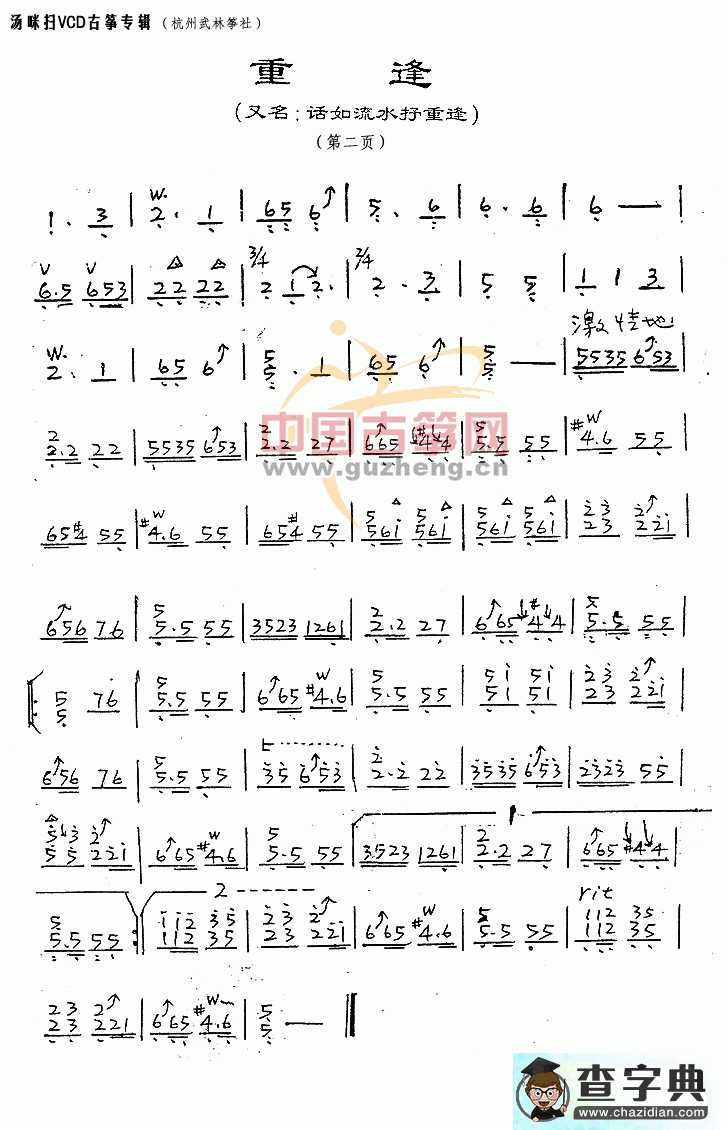 汤咪扫VCD古筝专辑（杭州武林筝社）
重 逢
（又名：话如流水抒重逢）
（第二页）
1. 3 | 2. 1 | 65 6 | 5. 6 | 6. 6 | 6 — |
6.5 653 | 22 22 | 3/4 2 1 2. | 2/4 2. 3 | 5 5 | 1 1 3 |
激情地
W. 2. 1 | 65 6 | 5 5. 1 | 65 6 | 5 5 — | 5535 653 |
2 2.2 22 | 5535 653 | 2 2.2 27 | 665 #44 | 5 5.5 55 | #W 4.6 55 |
中国古筝网
www.guzheng.cn
65#4 55 | #W 4.6 55 | 65#4 55 | 5 561 5 561 | 5 561 5 561 | 23 23 2 221 |
656 76 | 5 5.5 55 | 3523 1261 | 2 2.2 27 | 665 #44 | 5 5.5 55 |
5 5 76 | 5 5.5 55 | 665 #W 4.6 | 5 5.5 55 | 51 51 51 51 | 23 23 2 221 |
656 76 | 5 5.5 55 | 35 653 | 2 2.2 22 | 3535 653 | 2323 55 |
1
53 55 2 221 | 665 #W 4.6 | 5 5.5 55 | 3523 1261 | 2 2.2 27 | 665 #44 |
2
rit
5 5.5 55 | 112 112 35 35 | 23 23 2 221 | 665 #W 4.6 | 5 5.5 55 | 112 112 35 35 |
23 23 2 221 | 665 #W 4.6 | 5 5 — |
查字典
www.chazidian.com